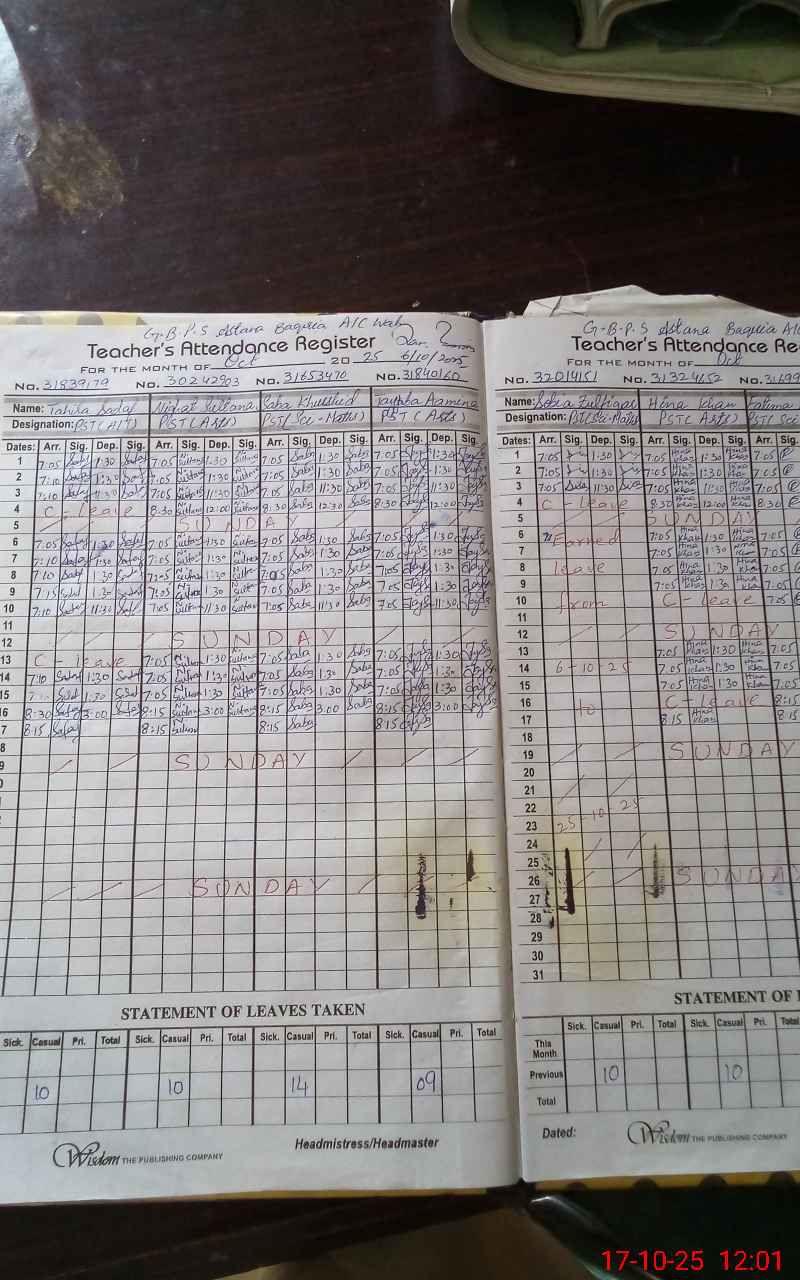 G.B.P.S Astana Baqueia A/C Wah
Teacher's Attendance Register
FOR THE MONTH OF Oct 20 25 6/10/2025
No. 31839179 No. 30242903 No. 31653470 No. 31840160
Name: Tahira Sadaf Nighat Sultana Saba Khurshid Aamina
Designation: PST(Arts) PST(Arts) PST(Sci-Maths) PST (Arts)
Dates: Arr. Sig. Dep. Sig. Arr. Sig. Dep. Sig. Arr. Sig. Dep. Sig. Arr. Sig. Dep. Sig.
1 7:05 Sadaf 1:30 Sadaf 7:05 N. Sultana 1:30 Sultana 7:05 Saba 1:30 Saba 7:05 1:30
2 7:10 Sadaf 1:30 Sadaf 7:05 N. Sultana 1:30 Sultana 7:05 Saba 1:30 Saba 7:05 1:30
3 7:10 Sadaf 11:30 Sadaf 7:05 N. Sultana 11:30 Sultana 7:05 Saba 11:30 Saba 7:05 11:30
4 C - leave 8:30 Sultana 12:00 Sultana 8:30 Saba 12:30 Saba 8:30 12:00
5 SUNDAY
6 7:05 Sadaf 1:30 Sadaf 7:05 N. Sultana 1:30 Sultana 7:05 Saba 1:30 Saba 7:05 1:30
7 7:10 Sadaf 1:30 Sadaf 7:05 N. Sultana 1:30 Sultana 7:05 Saba 1:30 Saba 7:05 1:30
8 7:10 Sadaf 1:30 Sadaf 7:05 N. Sultana 1:30 Sultana 7:05 Saba 1:30 Saba 7:05 1:30
9 7:15 Sadaf 1:30 Sadaf 7:05 N. Sultana 1:30 Sultana 7:05 Saba 1:30 Saba 7:05 1:30
10 7:10 Sadaf 11:30 Sadaf 7:05 N. Sultana 11:30 Sultana 7:05 Saba 11:30 Saba 7:05 11:30
11
12 SUNDAY
13 C - leave 7:05 N. Sultana 1:30 Sultana 7:05 Saba 1:30 Saba 7:05 1:30
14 7:10 Sadaf 1:30 Sadaf 7:05 N. Sultana 1:30 Sultana 7:05 Saba 1:30 Saba 7:05 1:30
15 Sadaf 1:30 Sadaf 7:05 N. Sultana 1:30 Sultana 7:05 Saba 1:30 Saba 7:05 1:30
16 8:30 Sadaf 3:00 Sadaf 8:15 N. Sultana 3:00 Sultana 8:15 Saba 3:00 Saba 8:15 3:00
7 8:15 Sadaf 8:15 N. Sultana 8:15 Saba 8:15
8
9 SUNDAY
SUNDAY
STATEMENT OF LEAVES TAKEN
Sick. Casual Pri. Total Sick. Casual Pri. Total Sick. Casual Pri. Total Sick. Casual Pri. Total
10 10 14 09
Headmistress/Headmaster
Wisdom THE PUBLISHING COMPANY
G.B.P.S Astana Baqueia A/C
Teacher's Attendance Re
FOR THE MONTH OF Oct
No. 32014151 No. 31324652 No. 31699
Name: Sobia Zulfiqar Hina Khan
Designation: PST(Sci-Maths PST( Arts) PST( Sci
Dates: Arr. Sig. Dep. Sig. Arr. Sig. Dep. Sig. Arr.
1 7:05 1:30 7:05 Hina Khan 1:30 Hina Khan 7:05
2 7:05 1:30 7:05 Hina Khan 1:30 Hina Khan 7:05
3 7:05 11:30 7:05 Hina Khan 11:30 Hina Khan 7:05
4 C - leave 8:30 Hina Khan 12:00 Hina Khan 8:30
5 SUNDAY
6 Earned 7:05 Hina Khan 1:30 Hina Khan 7:05
7 7:05 Hina Khan 1:30 Hina Khan 7:05
8 leave 7:05 Hina Khan 1:30 Hina Khan 7:05
9 7:05 Hina Khan 1:30 Hina Khan 7:05
10 from C - leave 7:05
11
12 SUNDAY
13 7:05 Hina Khan 1:30 Hina Khan 7:05
14 6-10-25 7:05 Hina Khan 1:30 Hina Khan 7:05
15 7:05 Hina Khan 1:30 Hina Khan 7:05
16 to C - leave 8:15
17 8:15 Hina Khan 8:15
18
19 SUNDAY
20
21
22
23 25-10-25
24
25
26 SUNDAY
27
28
29
30
31
STATEMENT OF
Sick. Casual Pri. Total Sick. Casual Pri. Total
This Month
Previous 10 10
Total
Dated:
Wisdom THE PUBLISHING COMPANY
17-10-25 12:01